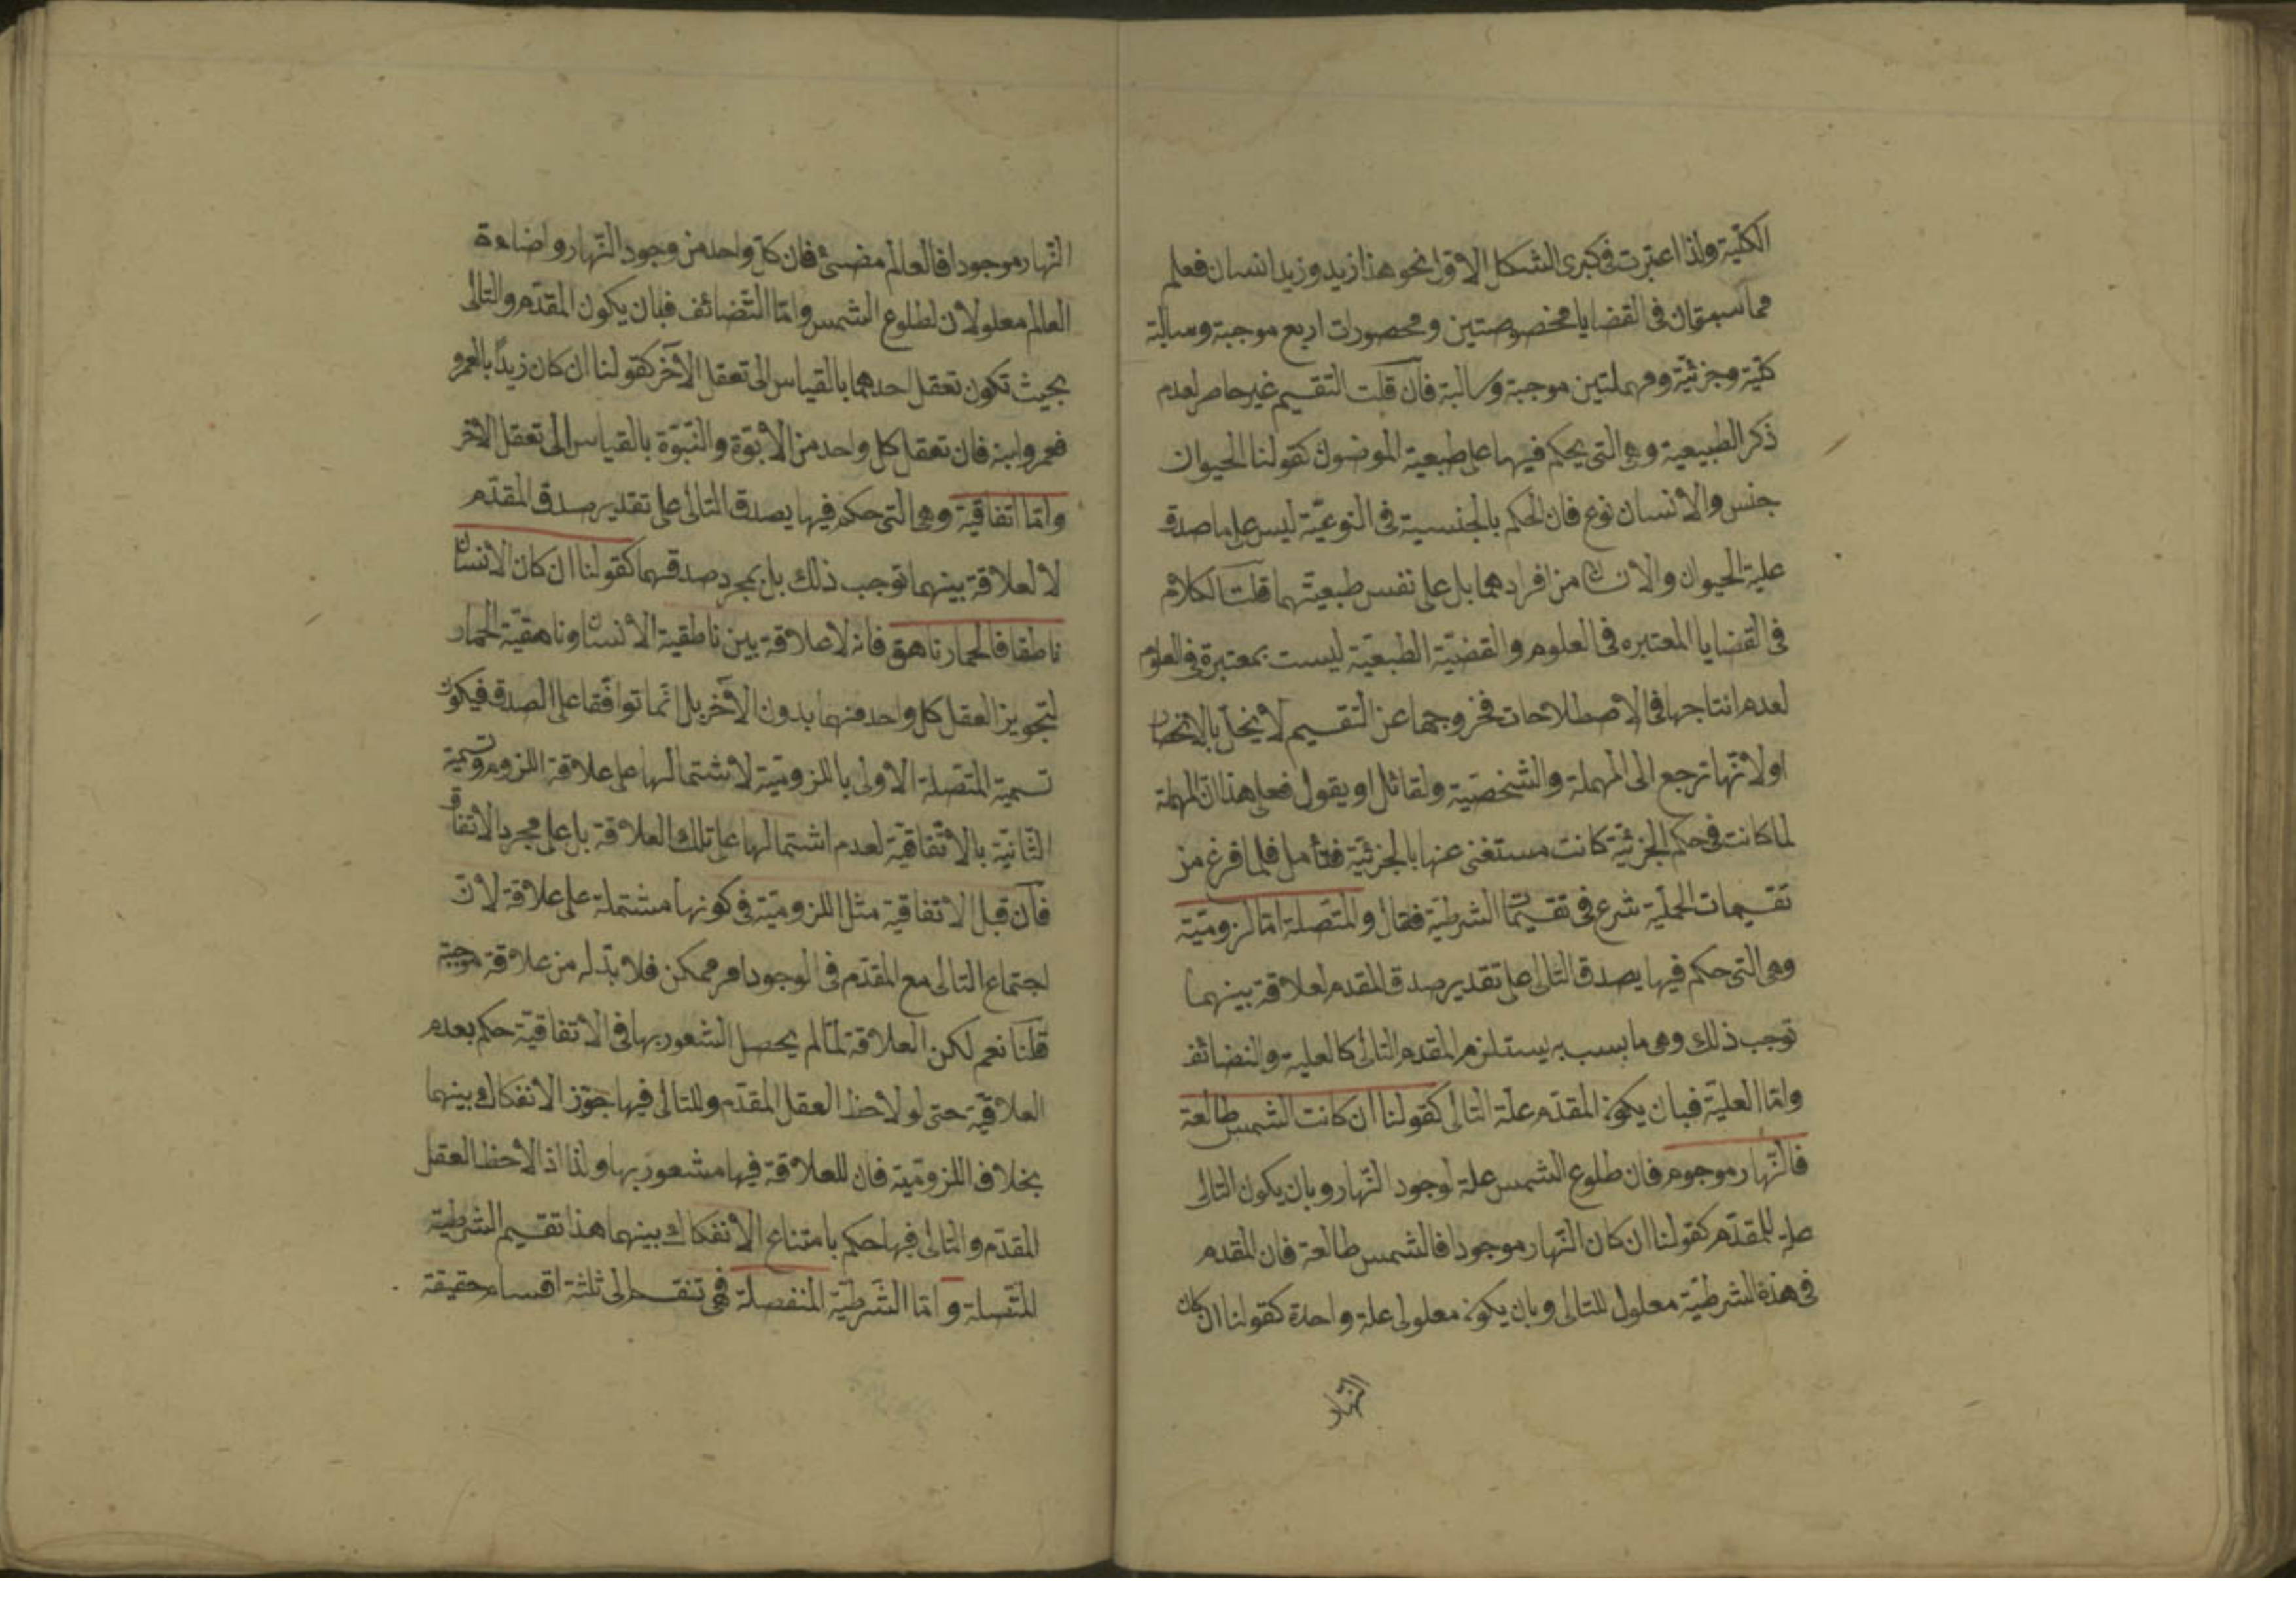 الكلية ولذا اعتبرت فى كبرى الشكل الاول نحو هذا زيد وزيد انسان فعلم
مما سبق ان فى القضايا مخصوصتين ومحصورات اربع موجبة وسالبة
كلية وجزئية ومهملتين موجبة وسالبة فان قلت التقسيم غير حاصر لعدم
ذكر الطبيعية وهى التى يحكم فيها على طبعية الموضوك كقولنا الحيوان
جنس والانسان نوع فان الحكم بالجنسية فى النوعيّة ليس على ما صدق
عليه الحيوان والانسان من افرادهما بل على نفس طبعيتهما قلت الكلام
فى القضايا المعتبره فى العلوم والقضيّة الطبعيّة ليست بمعتبرة فى العلوم
لعدم انتاجها فى الاصطلاحات فخروجها عن التقسيم لا يخلّ بالانحصار
او لانّها ترجع الى المهملة والشخصيّة ولقائل او يقول فعلى هذا ان المهملة
لما كانت فى حكم الجزئيّة كانت مستغنى عنها بالجزئيّة فتأمل فلما فرغ من
تقسيمات الحمليّة شرع فى تقسيمات الشرطيّة فقال والمتّصلة امّا لزوميّة
وهى التى حكم فيها يصدق التالى على تقدير صدق المقدم لعلاقة بينهما
توجب ذلك وهى ما بسببه يستلزم المقدم التالى كالعلية والتضائف
وامّا العليّة فبان يكون المقدّم علّة التالى كقولنا ان كانت الشمس طالعة
فالنّهار موجوم فان طلوع الشمس علة لوجود النّهار وبان يكون التالى
علة للمقدّم كقولنا ان كان النّهار موجودا فالشمس طالعة فان المقدم
فى هذة الشرطيّة معلول للتالى وبان يكون معلولى علة واحدة كقولنا ان كان
النّهار
النّهار موجودا فالعالم مضىئ فان كلّ واحد من وجود النّهار واضاءة
العالم معلولان لطلوع الشمس وامّا التّضائف فبان يكون المقدّم والتالى
بحيث تكون تعقل احدهما بالقياس الى تعقل الآخر كقولنا ان كان زيداً بالعمرو
فعمرو ابنه فان تعقل كل واحد من الابوّة والنبوّة بالقياس الى تعقل الاخر
وامّا اتفاقيّة وهى التى حكم فيها يصدق التالى على تقدير صدق المقدّم
لا لعلاقة بينهما توجب ذلك بل بمجرد صدقهما كقولنا ان كان الانسان
ناطقا فالحمار ناهق فانه لا علاقة بين ناطقية الانسان وناهقيّة الحمار
لتجويز العقل كل واحد منهما بدون الآخر بل انّما توافقا على الصدق فيكون
تسمية المتّصلة الاولى باللزوميّة لاشتمالها على علاقة اللزوم وتسمية
الثّانيّة بالاتّفاقيّة لعدم اشتمالها على تلك العلاقة بل على مجرد الاتفاق
فان قبل الاتفاقيّة مثل اللزوميّة فى كونها مشتملة على علاقة لانّ
اجتماع التالى مع المقدّم فى الوجود امر ممكن فلا بدّ له من علاقة موجبة
قلنا نعم لكن العلاقة لمّا لم يحصل الشعور بها فى الاتفاقيّة حكم بعدم
العلاقيّة حتى لو لاحظ العقل المقدّم وللتالى فيها جوّز الانفكاك بينهما
بخلاف اللزوميّة فان للعلاقة فيها مشعور بها ولذا اذ الاحظ العقل
المقدّم والتالى فيها حكم بامتناع الانفكاك بينهما هذا تقسيم الشرطية
المتّصلة وامّا الشّرطيّة المنفصلة فهى تنقسم الى ثلثة اقسام حقيقة